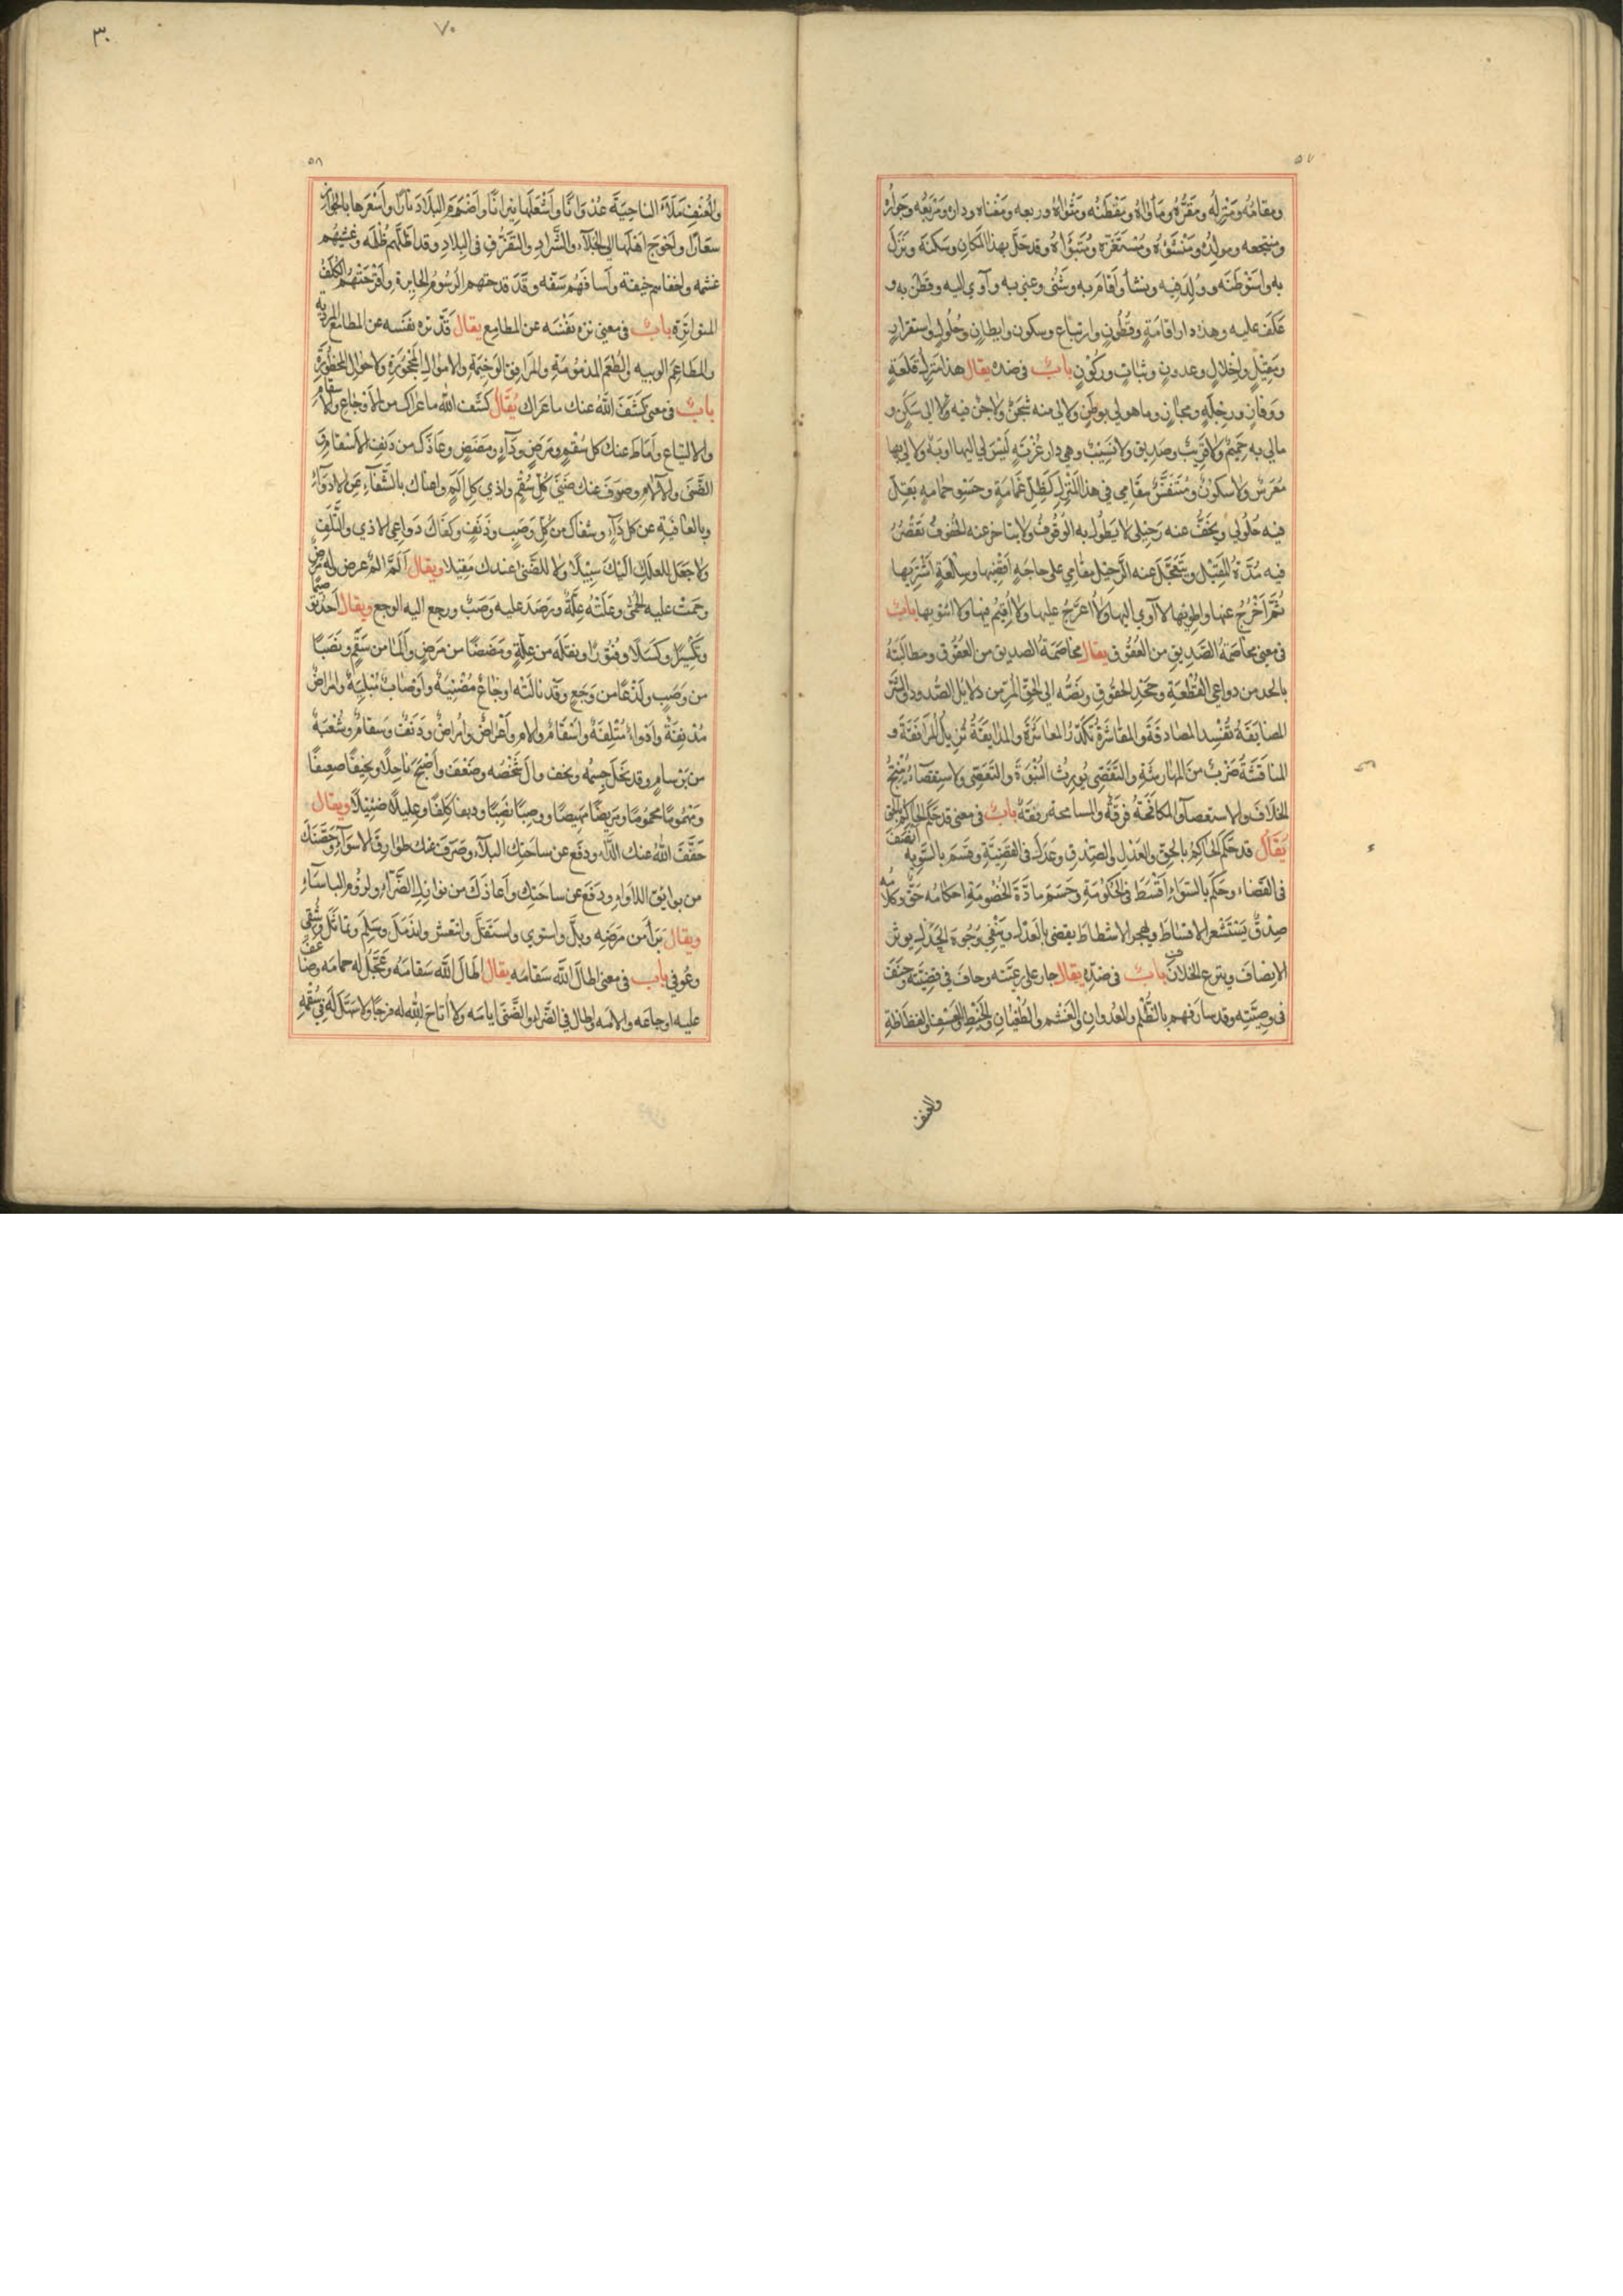 ٥٧
ومقامُه ومَنْزِلُه ومَقَرُّه ومَأواهُ ومَقْطَنُه ومَثْواهُ وربعه ومَغْناه وداره ومَرْبَعُه وجَوارُ
ومنتجعه ومولدُه ومَنْشَؤهُ ومُسْتَقَرّه ومُتَبَوَّاهُ وقد حَلَّ بهذا المكانِ وسَكَنَه ونَزَلَ
به واسْتَوْطَنَه ووُلِدَ فيه ونشأ واَقامَر به وشَتَى وغنِى به وآوى اليه وقَطَنَ به و
عَكَفَ عليه وهذه دار اقامَةٍ وقُطُونٍ وارتباع وسكون وايطانٍ وحُلُولٍ واستقرارٍ
ومَقِيْلٍ واِخْلالٍ وعدونٍ وثباتٍ وركُوْنٍ بابٌ فى ضده يقال هذا مَنْزِلُ قُلْعَةٍ
ورِحْلَةٍ ومجازٍ وما هو لى بوطَنٍ ولا لي منه شَجَنٌ ولا جَنَّ فيه ولا لى سَكَنٌ و
مالى به حَمِيْمٌ ولا قَرِيْبٌ وصَدِيق ولا نَسِيْبٌ وهى دار غُرْبَةٍ لَيْسَ لى اليها اوبَةٌ ولا لى بها
مُعَرَّسٌ ولا سكونٌ ومُتَنَفَّسٌ مقامى فى هذا المَنْزِلِ كَظِلِّ غَمامَةٍ وحَسْوِ حمامةٍ يَقِلُّ
فيه حُلُولى ويَخَفُّ عنه رَحِيْلى لا يَطُولُ به الوُقُوفُ ولا يتاخر عنه الخُفُوفُ تَقْصُرُ
فيه مُدَّةُ المَقِيْل ويتَعَجَّلُ عنه الرَّحِيْل مقامى على حاجَةٍ اَقْضِيْها وسِلْعَةٍ اَشْتَرِيْها
ثُمَّ اَخْرُجُ عنها واطويها لا آوى اليها ولا اعَرِّجُ عليها ولا اُقِيْمُ فيها ولا اثوى بها بابٌ
فى معنى مخاصَمَةُ الصَّدِيقِ من العُقُوقِ يقال مخاصَمَةُ الصديق من العقُوقِ ومطالَبَتُه
بالحد من دواعى القَطِيْعَةِ وجَحْدِ الحقُوقِ ونَصُّه الى الحَقِّ المُرِّ من دلايل الصُّدود والشَّرِّ
المضايَقَةُ تُفْسِد المصادَقَةَ والمقاشَرَةُ تُكَدِّرُ المعاشَرَةَ والمدايَقَةُ تُزِيلُ المرافَقَةَ و
المناقَشَةُ ضَرْبٌ من المهارشَةِ والتَّقَصِّى يُورِثُ النَّبْوَةَ والتَّعَصِّى والاستِقْصآءُ يُنْتِجُ
الخلافَ والاستعصآ والمكافَحَةُ فُرقَةٌ والمسامحة رِفْقَةٌ بابٌ فى معنى قد حَكَم الحاكِمُ بالحق
يُقَالُ قد حَكَم الحاكِمُ بالحق والعَدْلِ والصِّدقِ وعَدَلَ فى القَضِيَّةِ وقسَمَ بالسَّوِيَّةِ اَنْصَفَ
فى القَضاء وحَكَمَ بالسَّوَاءِ اَقْسَطَ فى الحكُوْمَةِ وحَسَمَ مادَّةَ الخُصُومَةِ احكامُه حَقٌّ وكلامُه
صِدْقٌ يَسْتَشْعِر الاقساطَ ويهجر الاشطاطَ يقضى بالعَدْلِ ويَنْفِى وُجُوهَ الجَدَلِ يوثر
الانصافَ وينزع الخلافَ بابٌ فى ضدّه يقال جار على رعيّته وحافَ فى قضيّته وجَنَفَ
فى وصيَّتِه وقد سارَ فيهم بالظُّلْمِ والعُدْوانِ والغَشْمِ والطُّغْيَانِ والخَبْطِ والعَسْفِ والفَظاظَةِ
والعنف
٣٠
٧٠
٥٨
والعُنْفِ مَلَأَ الناحِيَةَ عُدْوَانًا واَشْعَلَها نِيرانًا واَضْرَمَ البِلادَ نارًا واَسْعَرَها بالجَوْرِ
سعَارًا واَحْوَجَ اَهْلَها الى الجَلآءِ والشَّرادِ والتَّفَرُّقِ فى البِلادِ وقد اَظَلَّهم ظُلْمُه وغَشِيَهُم
غشمه واخفاهم خيفته وآسافَهُم سَفَه وقَد قدحتهم الرُّسُومُ الجايِرةِ واَقْرَحَتْهُم الكُلَفُ
المتواتِرَة بابٌ فى معنى نزه نفْسَه عن المطامِع يقال قَد نزه نفسه عن المطامع المُرْدِية
والمطاعِم الوبيه والطُعَم المذمُومَةِ والمرافِقِ الوَخِيْمَةِ والاموالِ المحجُورَةِ والاحوالِ المحظُورَةِ
بابٌ فى معنى كَشَفَ اللهُ عنك ما عَراك يُقَالُ كَشَف الله ما عراك من الاَوْجاعِ والاَسْقامِ
والالتياع واَماطَ عنك كل سُقْمٍ ومَرَضٍ ودآءٍ ومَضَضٍ وعَاذَك من دَنَفِ الاَسْقامِ و
الضَّنَى والآلامِ وصَرَفَ عنك ضَنَى كُلِّ سُقْمٍ واذى كل اَلَمٍ واهناك بالشِّفَآءِ عن الادوآءِ
وبالعافيَةِ عن كل دآءٍ وشفاكَ من كُلِّ وَصَبٍ ودَنَفٍ وكَفَاكَ دَواعِىَ الاذى والتَّلَفِ
ولا جَعَلَ للعِلَلِ اليْكَ سَبِيْلًا ولا للضَّنى عندك مَقِيلا ويقال اَلَمَّ اَلمٌ عرض له مرَضٌ
وحَمَتْ عليه الحُمّى وعَلَتْهُ عِلَّةٌ ورَصَدَ عليه وَصَبٌ ورجع اليه الوجع ويقال اَجِدُ تَوَصُّمًا
وتَكَسُّلًا وكَسَلًا وفُتُوْرًا وثِقْلَه من عِلَّةٍ ومَضَضًا من مَرَضٍ واَلَمًا من سَقَمٍ ونَصَبًا
من وَصَبٍ ولَذْعًا من وَجَعٍ وقَد نالَتْه اوجَاعٌ مُضْنِيَةٌ واَوْصابٌ مُبْلِيَةٌ وامراضٌ
مُدْنِفَةٌ واَدْواءٌ مُتْلِفَةٌ واسْقامٌ وآلامٌ واَعْراضٌ واَمْراضٌ ودَنَفٌ وسقامٌ وشُعْبَةٌ
من برسامٍ وقد نَحَلَ جِسْمُه ونحف وال شَخْصُه وضَعُفَ واَصْبَحَ ناحِلًا ونحِيفًا ضعِيفًا
ومَنْهُومًا محمُومًا ومَرِيضًا مَهِيضًا ووصِبًا نَصِبًا ودنفا كَلِفًا وعلِيلًا ضَئِيْلًا ويقال
خَفَّفَ اللهُ عنك الدَّآءَ ودفَع عن ساحَتِك البلآءَ وصَرَفَ عنك طَوارِقَ الاسوَآءِ وحَصَّنَكَ
من بوايِقِ اللاواءِ ودَفَعَ عن ساحَتِك واَعاذَكَ من نوازِلِ الضَّرّآءِ ولزُومِ الباسَآءِ
ويقال بَرَأ من مَرَضِه وبَلَّ واستوى واستَقَلَّ وانتعش واندَمَلَ وسَلِمَ وتماثَلَ وشُفِىَ
وعُوفى باب فى معنى اطالَ الله سَقامَه يقال اطالَ الله سَقامَه وعَجَّلَ له حمامَه وضاعَفَ
عليه اوجاعَه والامَه واطال فى الضَّراءِ والضَّنَى ايامَه ولا اَتاحَ الله له فرجًا ولا سَهَّلَ لَه فى سُقْمِه